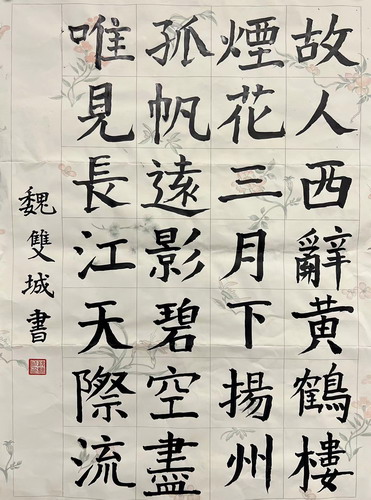 故人西辭黃鶴樓
煙花三月下揚州
孤帆遠影碧空盡
唯見長江天際流
魏雙城書